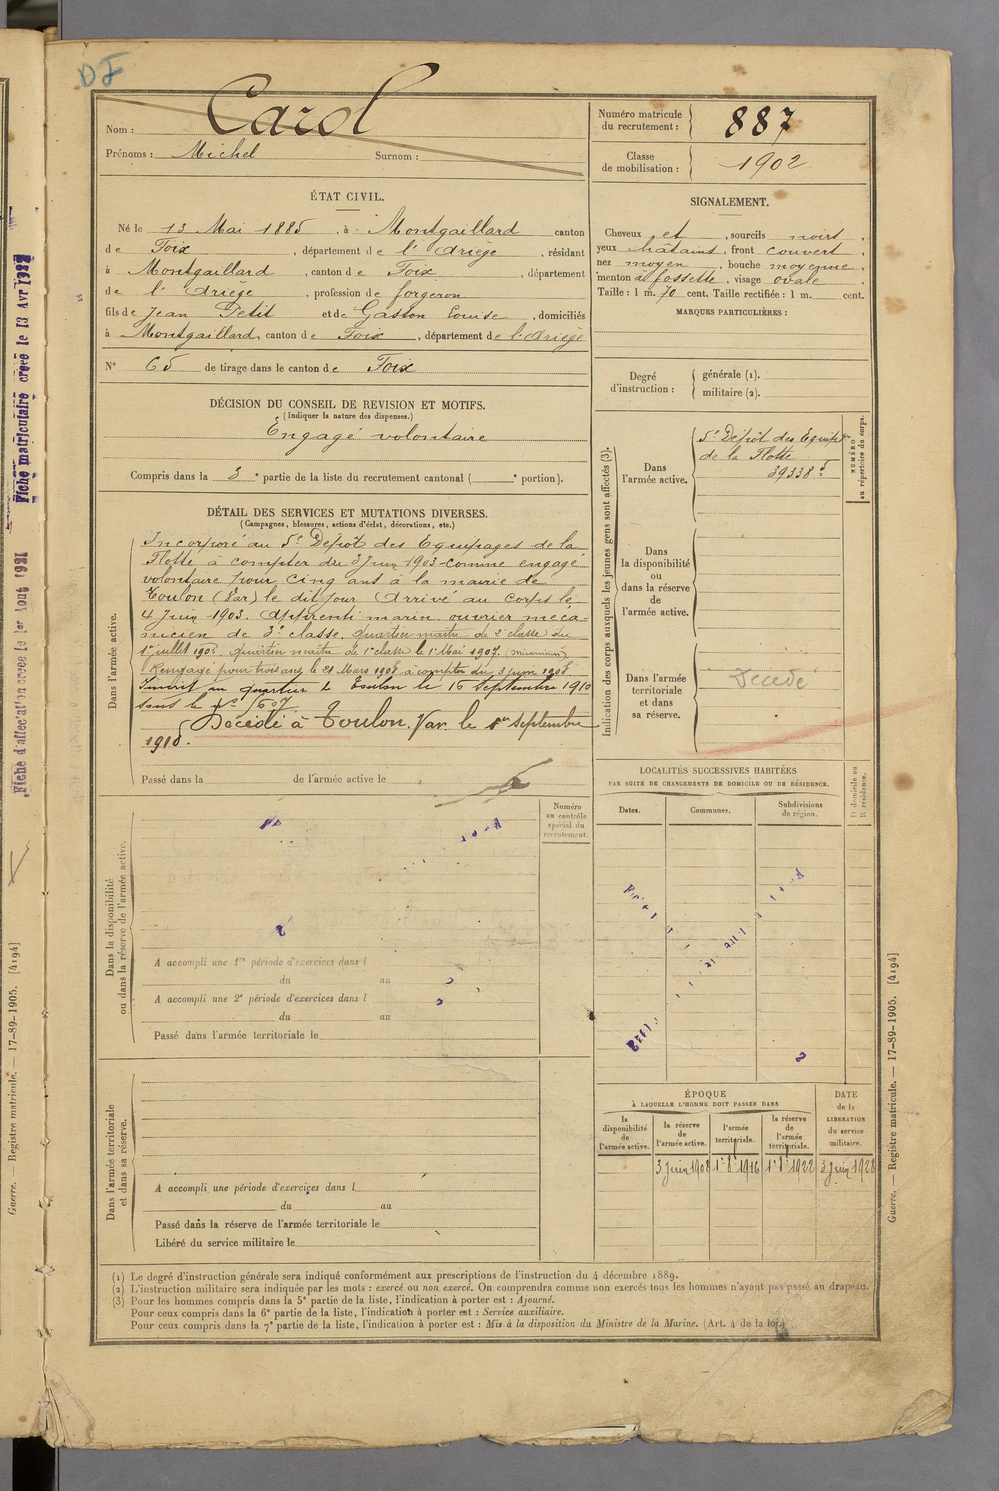 DF
Nom : Carol
Prénoms : Michel Surnom :
Numéro matricule du recrutement : 887
Classe de mobilisation : 1902
ÉTAT CIVIL.
Né le 13 Mai 1885, à Montgaillard canton
de Foix, département de l'Ariège, résidant
à Montgaillard, canton de Foix, département
de l'Ariège, profession de forgeron
fils de Jean Petit et de Gaston Louise, domiciliés
à Montgaillard, canton de Foix, département de l'Ariège
N° 65 de tirage dans le canton de Foix
SIGNALEMENT.
Cheveux et, sourcils noirs,
yeux châtains, front couvert,
nez moyen, bouche moyenne,
menton à fossette, visage ovale.
Taille : 1 m. 70 cent. Taille rectifiée : 1 m. cent.
MARQUES PARTICULIÈRES :
Degré d'instruction : générale (1).
militaire (2).
DÉCISION DU CONSEIL DE REVISION ET MOTIFS.
(Indiquer la nature des dispenses.)
Engagé volontaire
Compris dans la 3e partie de la liste du recrutement cantonal ( e portion).
DÉTAIL DES SERVICES ET MUTATIONS DIVERSES.
(Campagnes, blessures, actions d'éclat, décorations, etc.)
Dans l'armée active.
Incorporé au 5e Dépôt des Equipages de la
Flotte à compter du 3 Juin 1903 comme engagé
volontaire pour cinq ans à la mairie de
Toulon (Var) le dit jour. Arrivé au corps le
4 Juin 1903. Apprenti marin ouvrier méca-
nicien de 3e classe. quartier maître de 2e classe du
1er juillet 1905. quartier maître de 1e classe le 1er Mai 1907.
Rengagé pour trois ans le 21 Mars 1908 à compter du 3 juin 1908
Inscrit au quartier de Toulon le 16 Septembre 1910
sous le n°
Décédé à Toulon, Var le 1er septembre
1910.
Passé dans la de l'armée active le
Indication des corps auxquels les jeunes gens sont affectés (3).
NUMÉRO au répertoire du corps.
Dans l'armée active.
5e Dépôt des Equipages
de la Flotte
39338
Dans la disponibilité ou dans la réserve de l'armée active.
Dans l'armée territoriale et dans sa réserve.
Décédé
LOCALITÉS SUCCESSIVES HABITÉES
PAR SUITE DE CHANGEMENTS DE DOMICILE OU DE RÉSIDENCE.
Dates. Communes. Subdivisions de région.
D domicile ou R résidence.
Dans la disponibilité ou dans la réserve de l'armée active.
Numéro au contrôle spécial du recrutement.
A accompli une 1re période d'exercices dans l
du au
A accompli une 2e période d'exercices dans l
du au
Passé dans l'armée territoriale le
Dans l'armée territoriale et dans sa réserve.
A accompli une période d'exercices dans l
du au
Passé dans la réserve de l'armée territoriale le
Libéré du service militaire le
ÉPOQUE
À LAQUELLE L'HOMME DOIT PASSER DANS
la disponibilité de l'armée active.
la réserve de l'armée active.
l'armée territoriale.
la réserve de l'armée territoriale.
DATE de la LIBÉRATION du service militaire.
3 juin 1908 1er 8bre 1916 1er 8bre 1922 3 juin 1928
(1) Le degré d'instruction générale sera indiqué conformément aux prescriptions de l'instruction du 4 décembre 1889.
(2) L'instruction militaire sera indiquée par les mots : exercé ou non exercé. On comprendra comme non exercés tous les hommes n'ayant pas passé au drapeau.
(3) Pour les hommes compris dans la 5e partie de la liste, l'indication à porter est : Ajourné.
Pour ceux compris dans la 6e partie de la liste, l'indication à porter est : Service auxiliaire.
Pour ceux compris dans la 7e partie de la liste, l'indication à porter est : Mis à la disposition du Ministre de la Marine. (Art. 4 de la loi.)
Guerre. — Registre matricule. — 17-89-1905. [4194]
Guerre. Registre matricule. — 17-89-1905. [4194]
Fiche matriculaire créée le 13 Avr
Fiche d'affectation créée le 1er Aout 1921